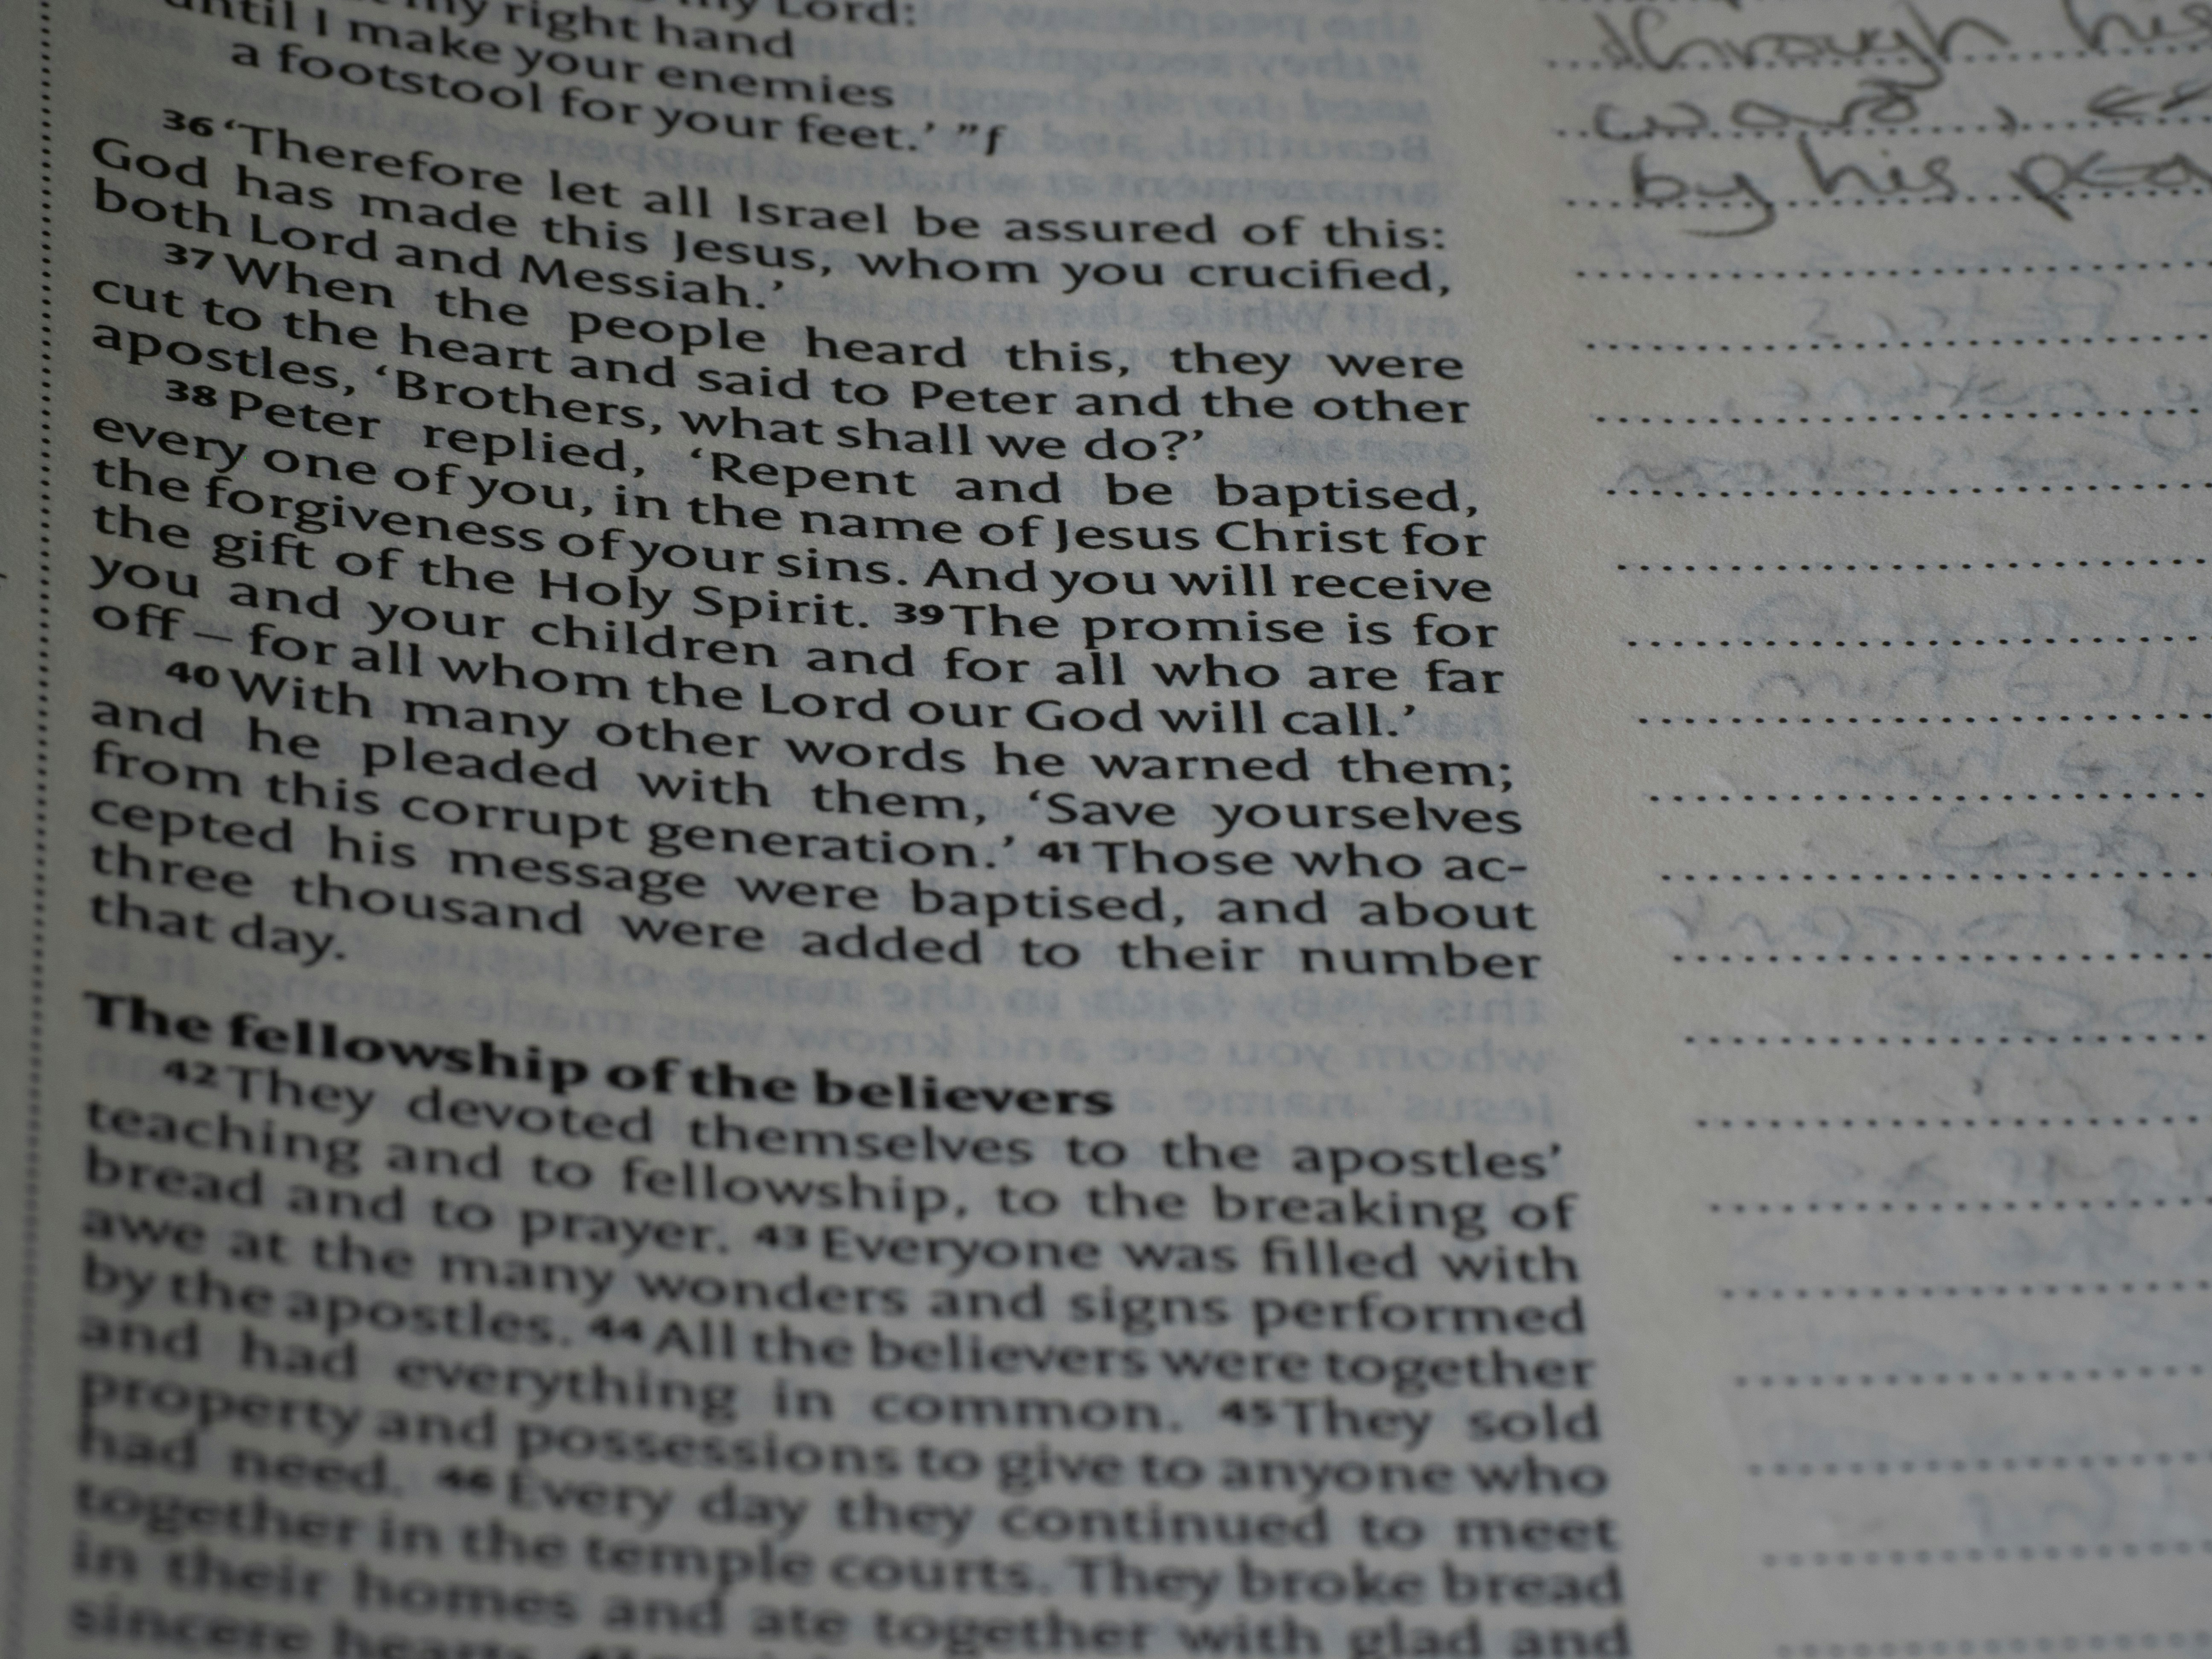 my Lord:
my right hand
until I make your enemies
a footstool for your feet.’ ”f
36 ‘Therefore let all Israel be assured of this:
God has made this Jesus, whom you crucified,
both Lord and Messiah.’
37 When the people heard this, they were
cut to the heart and said to Peter and the other
apostles, ‘Brothers, what shall we do?’
38 Peter replied, ‘Repent and be baptised,
every one of you, in the name of Jesus Christ for
the forgiveness of your sins. And you will receive
the gift of the Holy Spirit. 39 The promise is for
you and your children and for all who are far
off – for all whom the Lord our God will call.’
40 With many other words he warned them;
and he pleaded with them, ‘Save yourselves
from this corrupt generation.’ 41 Those who ac-
cepted his message were baptised, and about
three thousand were added to their number
that day.
The fellowship of the believers
42 They devoted themselves to the apostles’
teaching and to fellowship, to the breaking of
bread and to prayer. 43 Everyone was filled with
awe at the many wonders and signs performed
by the apostles. 44 All the believers were together
and had everything in common. 45 They sold
property and possessions to give to anyone who
had need. 46 Every day they continued to meet
together in the temple courts. They broke bread
in their homes and ate together with glad and
sincere hearts,
through his
word,
by his